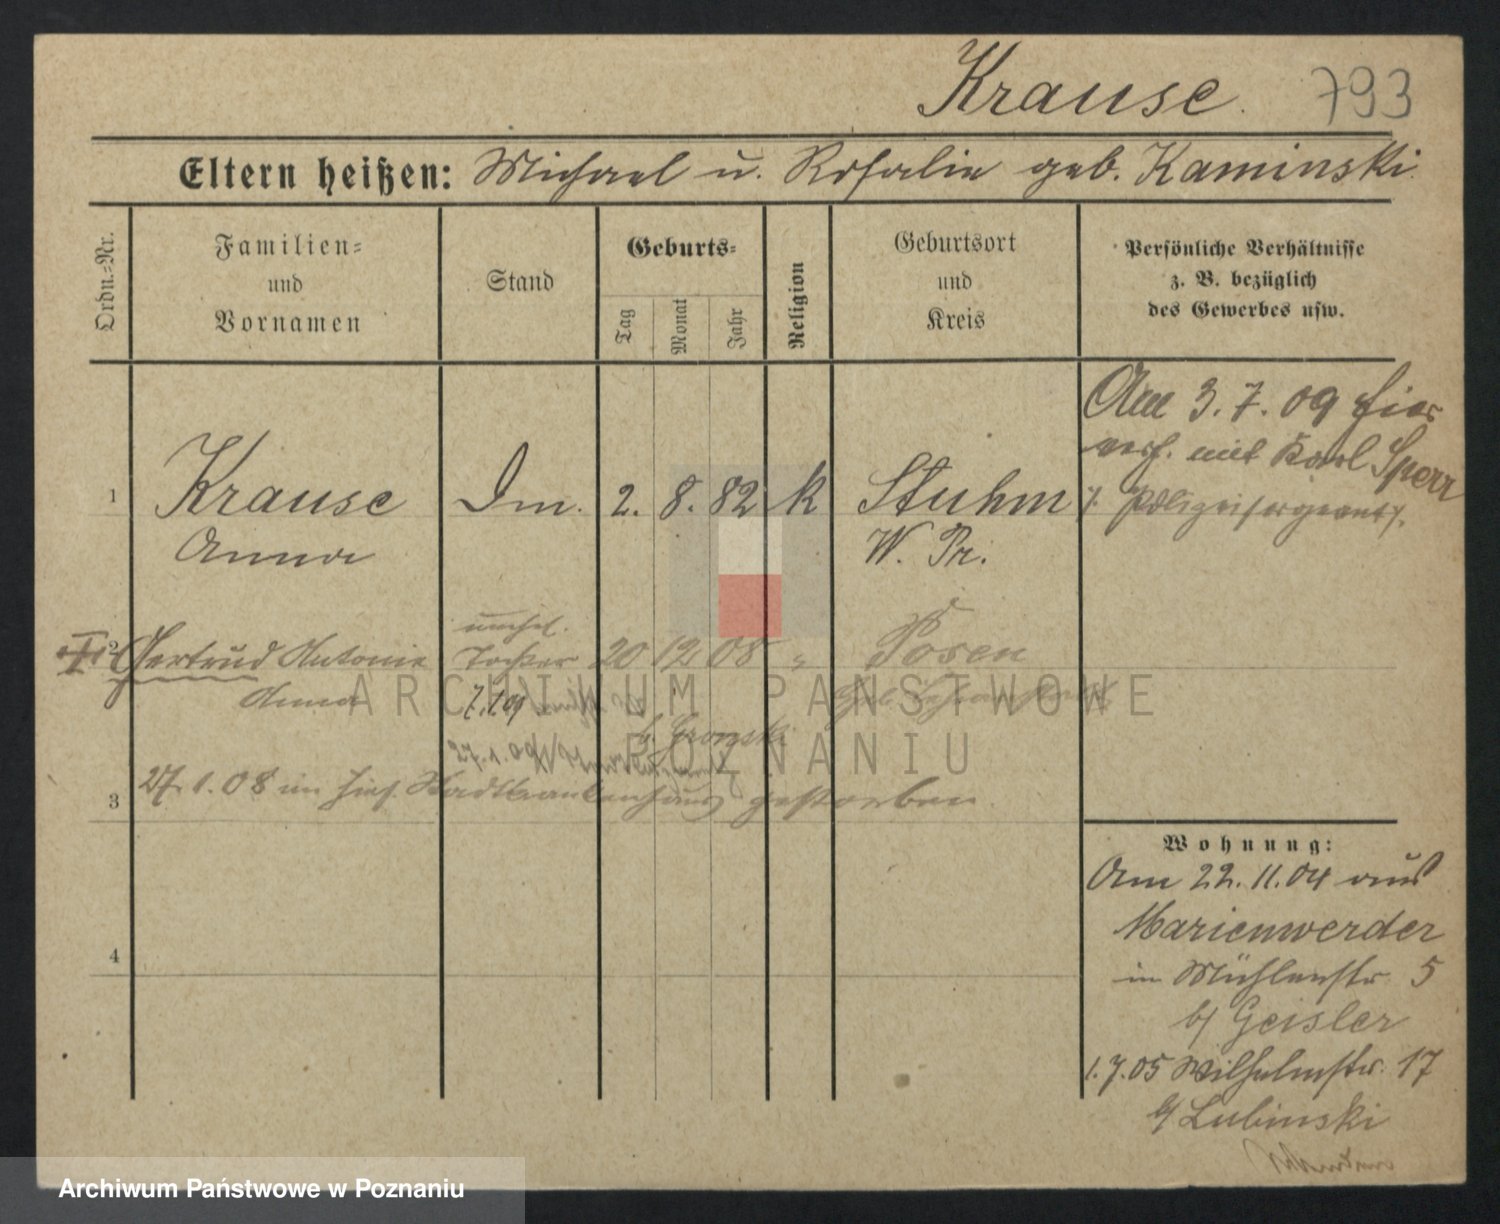 Krause. 793
Eltern heißen: Michael u. Rosalie geb. Kaminski.
Ordn.=Nr.
Familien=
und
Vornamen
Stand
Geburts=
Tag
Monat
Jahr
Religion
Geburtsort
und
Kreis
Persönliche Verhältnisse
z. B. bezüglich
des Gewerbes usw.
1
Krause
Anna
Dm.
2. 8. 82
k
Stuhm
W. Pr.
Am 3.7.09 hier
verh. mit Karl Sperr
Polizeisergeant
2
Gertrud Antonie
Anna
unehel.
Tochter
20 12 08 "
Posen
7.1.09
b. Gronski
27.1.09
3
27.1.08 im hies. Stadtkrankenhaus gestorben.
4
Wohnung:
Am 22.11.04 aus
Marienwerder
in Mühlenstr. 5
b/ Geisler
1.7.05 Wilhelmstr. 17
b/ Lubinski
ARCHIWUM PAŃSTWOWE
W POZNANIU
Archiwum Państwowe w Poznaniu